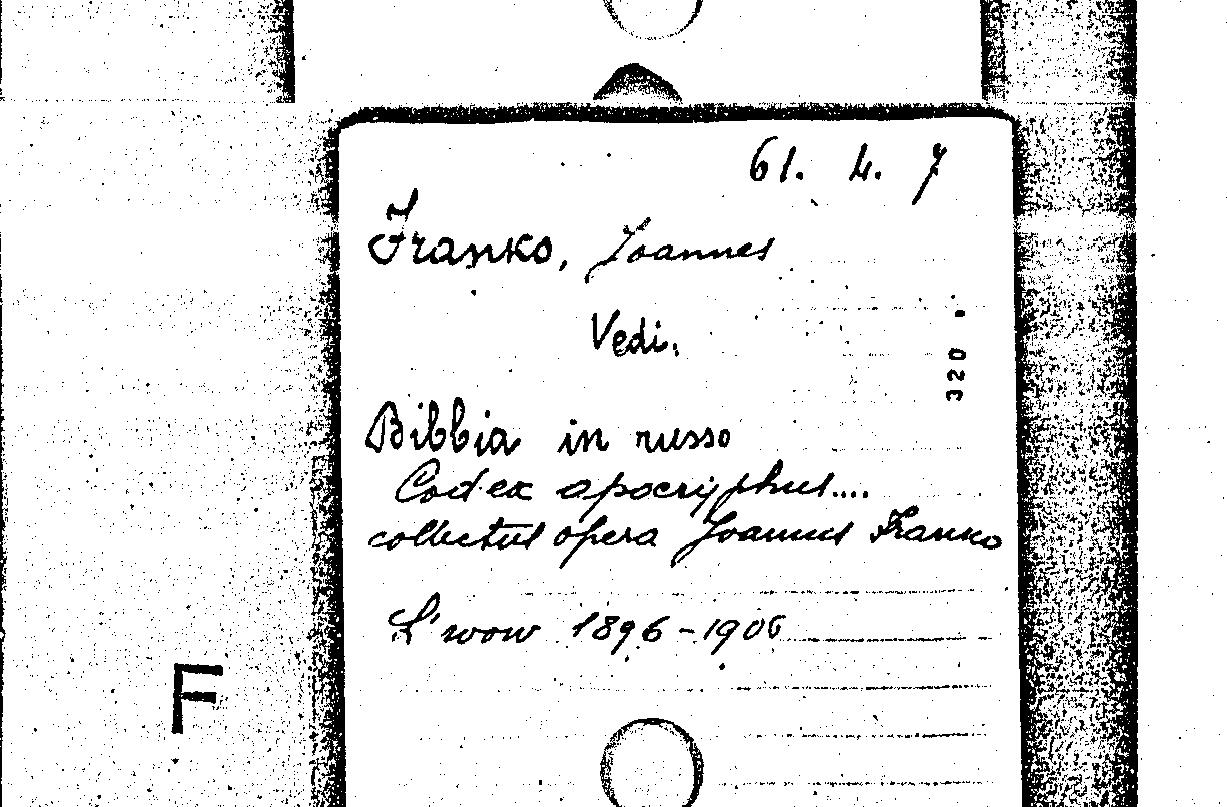 61. 4. 7
Franko, Joannes
Vedi.
320
Bibbia in russo
Codex apocryphus....
collectus opera Joannes Franko
L'wow 1896-1906
F